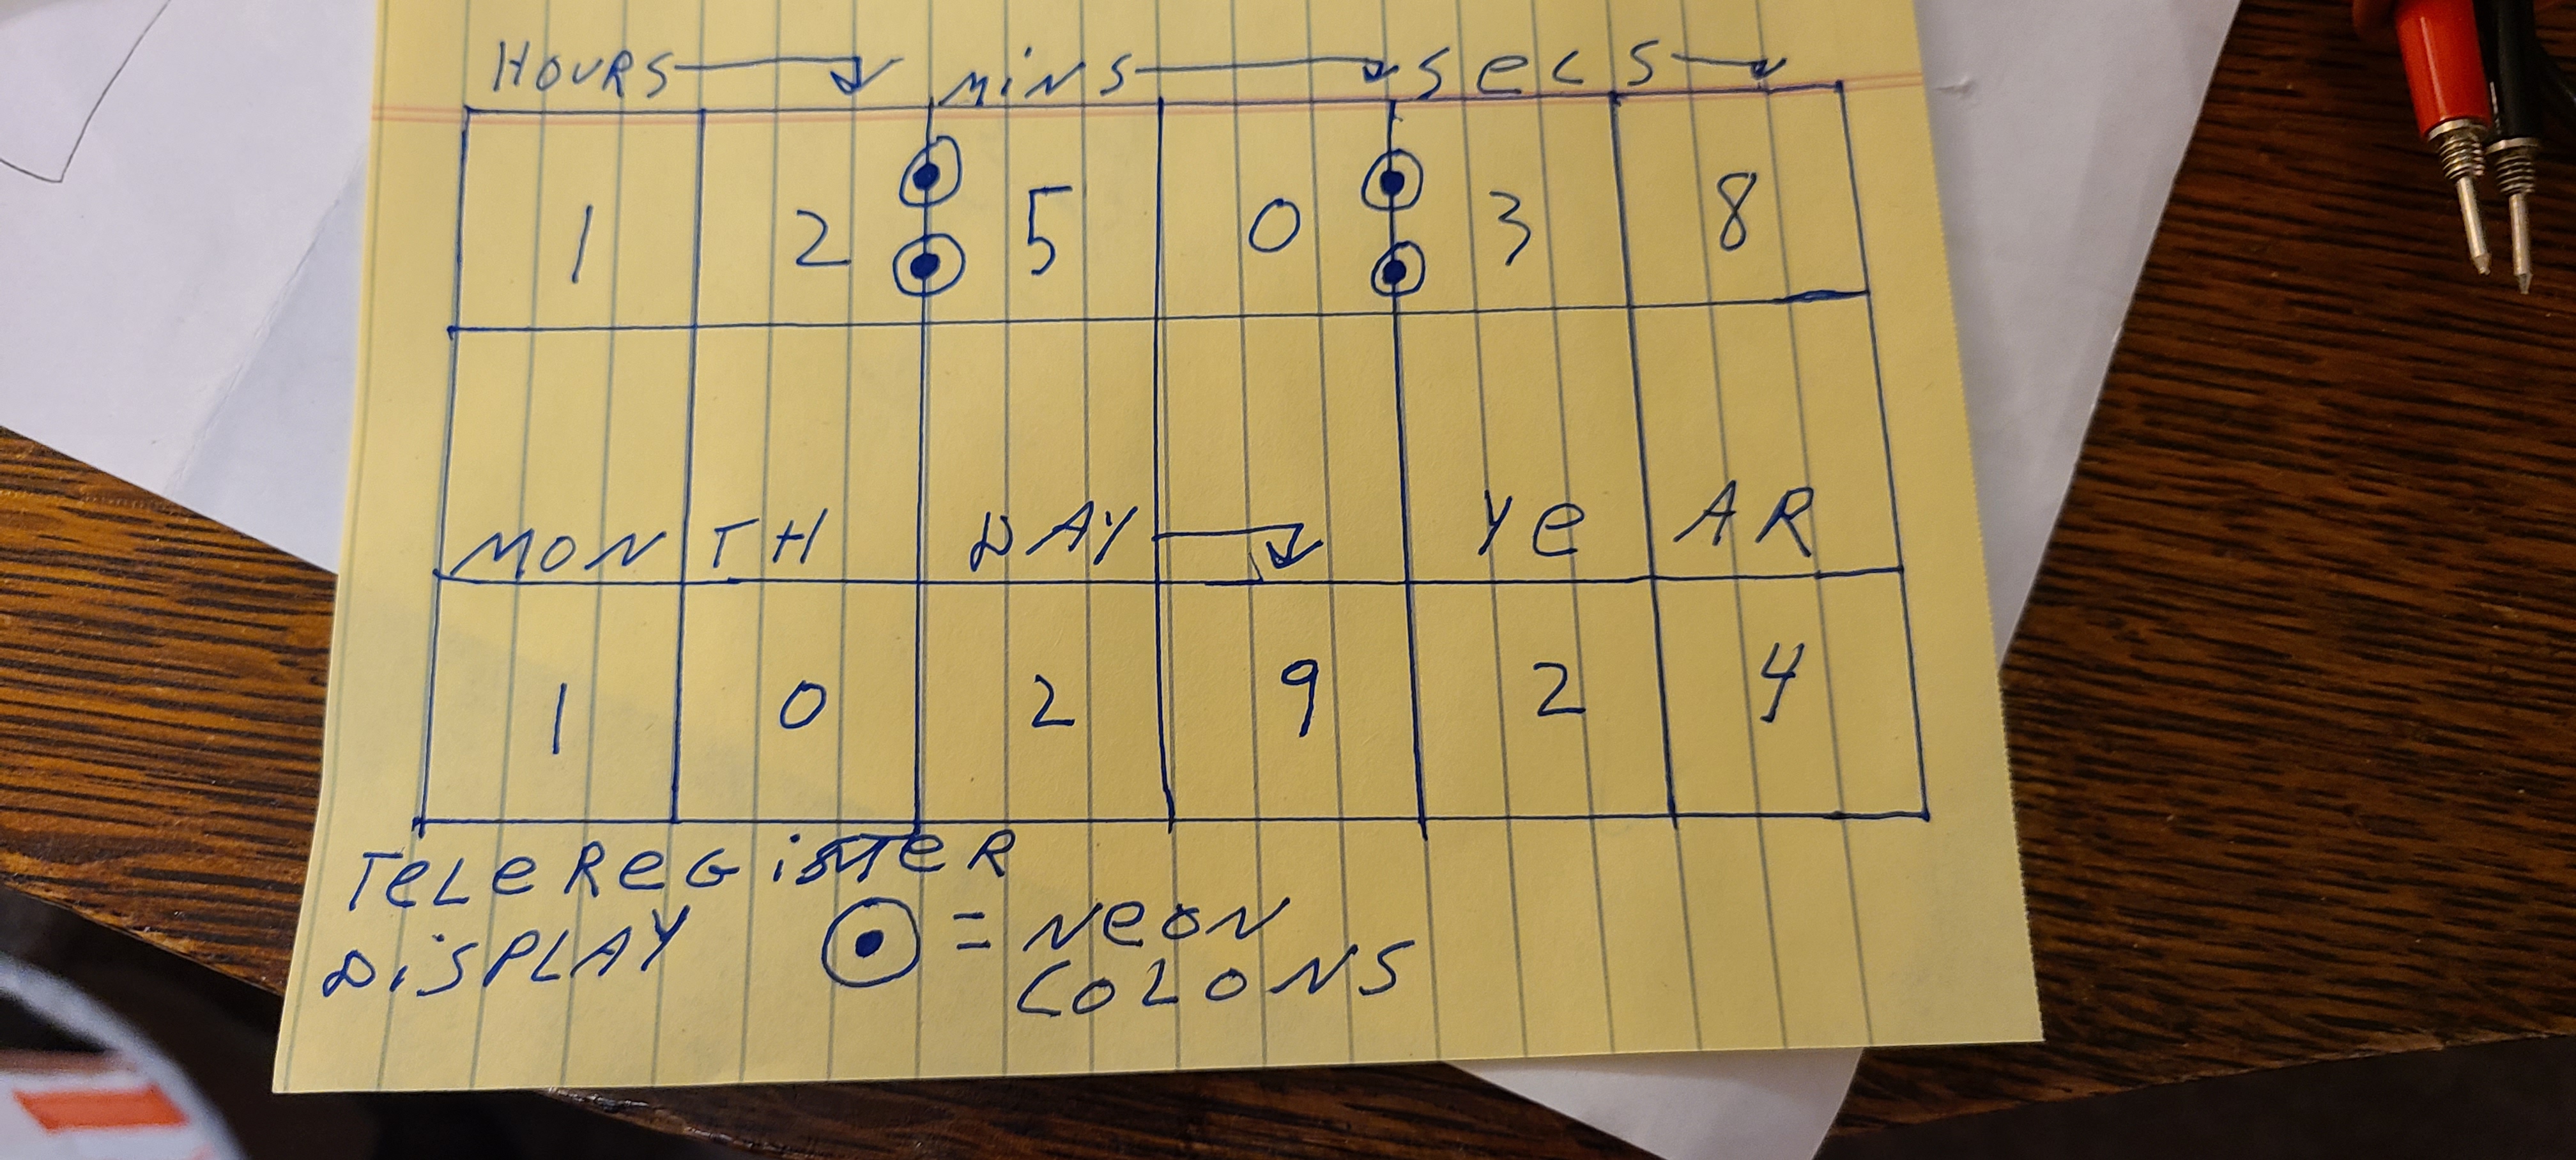 HOURS MiNS SeCS
1 2 5 0 3 8
MONTH DAY YeAR
1 0 2 9 2 4
TeLeReGisTeR
DiSPLAY
= NeON
COLONS